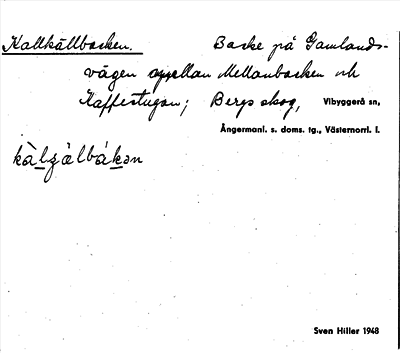 Kallkällbacken. Backe på Gamlands-
vägen mellan Mellanbacken och
Kaffestugan; Bergs skog, Vibyggerå sn,
Ångermanl. s. doms. tg., Västernorrl. l.
kàlʒ̀ælbákən
Sven Hiller 1948